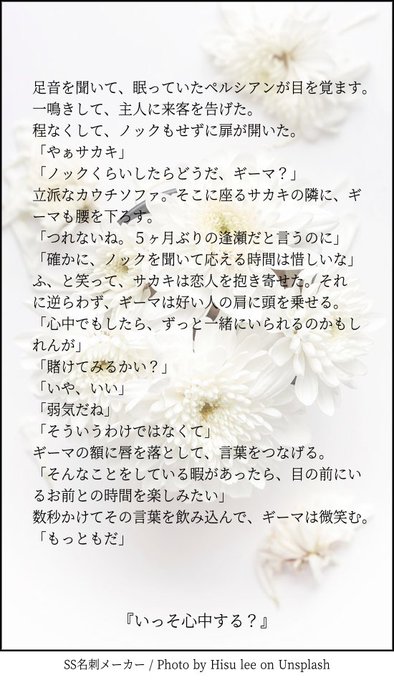 足音を聞いて、眠っていたペルシアンが目を覚ます。
一鳴きして、主人に来客を告げた。
程なくして、ノックもせずに扉が開いた。
「やぁサカキ」
「ノックくらいしたらどうだ、ギーマ?」
立派なカウチソファ。そこに座るサカキの隣に、ギ
ーマも腰を下ろす。
「つれないね。5ヶ月ぶりの逢瀬だと言うのに」
「確かに、ノックを聞いて応える時間は惜しいな」
ふ、と笑って、サカキは恋人を抱き寄せた。それ
に逆らわず、ギーマは好い人の肩に頭を乗せる。
「心中でもしたら、ずっと一緒にいられるのかもし
れんが」
「賭けてみるかい?」
「いや、いい」
「弱気だね」
「そういうわけではなくて」
ギーマの額に唇を落として、言葉をつなげる。
「そんなことをしている暇があったら、目の前にい
るお前との時間を楽しみたい」
数秒かけてその言葉を飲み込んで、ギーマは微笑む。
「もっともだ」
『いっそ心中する?』
SS名刺メーカー / Photo by Hisu lee on Unsplash